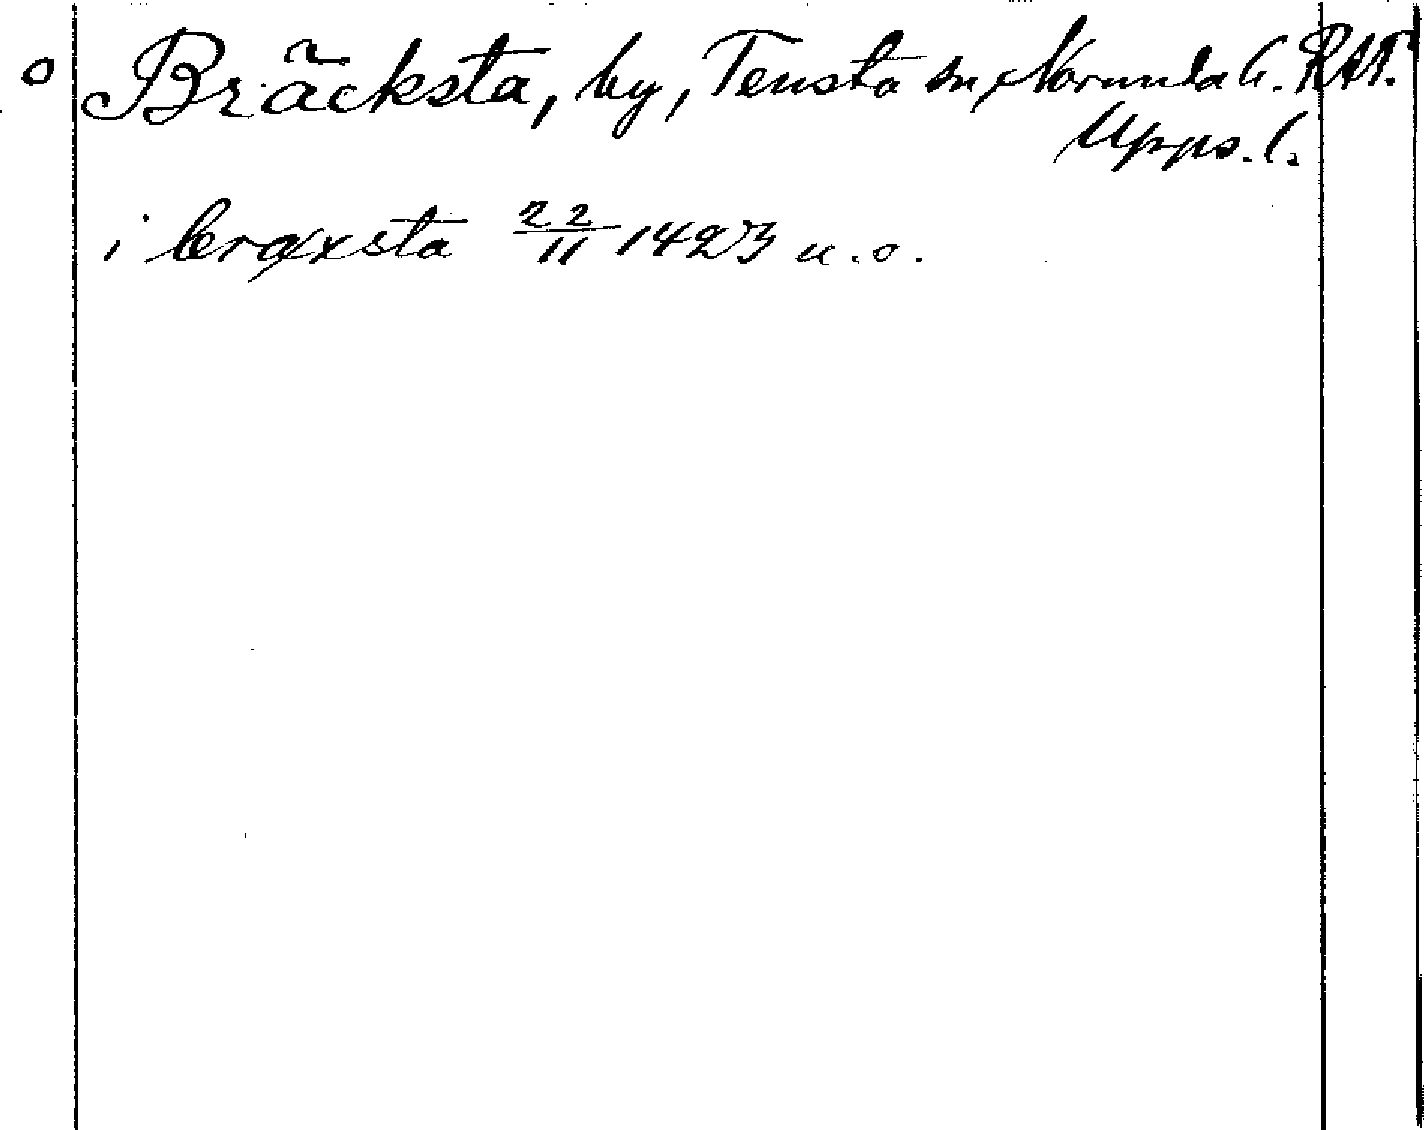 o Bräcksta, by, Tensta sn, Norunda h. RAP.
Upps. l.
i brøxsta 22/11 1423 u.o.